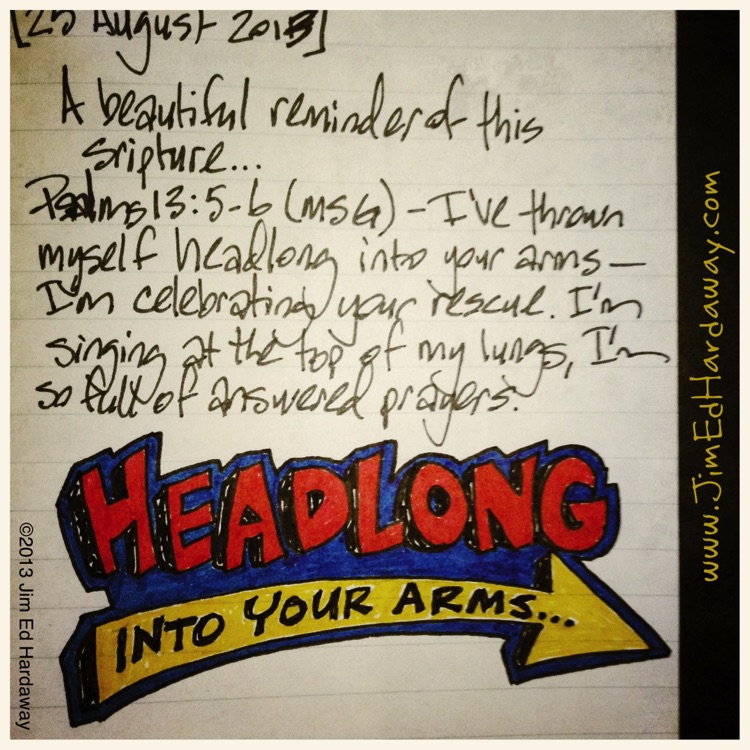 [25 August 2013]
A beautiful reminder of this
sripture...
Psalms 13:5-6 (MSG) - I've thrown
myself headlong into your arms—
I'm celebrating your rescue. I'm
singing at the top of my lungs, I'm
so full of answered prayers.
HEADLONG
INTO YOUR ARMS...
www.JimEdHardaway.com
©2013 Jim Ed Hardaway